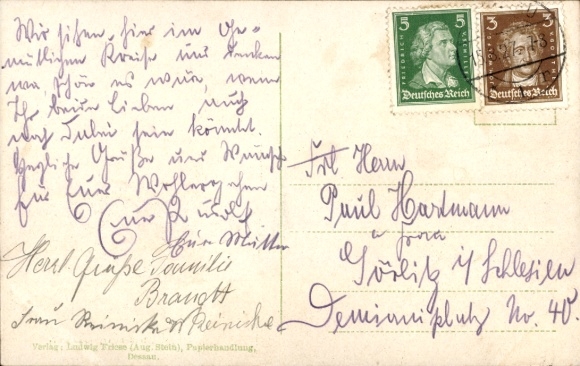 Wir sitzen hier im Ge-
mütlichen Kreise und denken
wie schön es wär, wenn
Ihr beide Lieben auch
noch dabei sein könntet.
Herzliche Grüße und Wünsche
für Euer Wohlergehen
Euer Rudolf
Eure Mutter
Herzl. Grüße Familie
Brandt
Frau Reinicke
Reinicke
Verlag: Ludwig Friese (Aug. Stein), Papierhandlung,
Dessau.
5 5
FRIEDRICH SCHILLER
Deutsches Reich
3 3
Deutsches Reich
Herrn
Paul Hartmann
u Frau
Görlitz i/Schlesien
Demianiplatz No. 40.